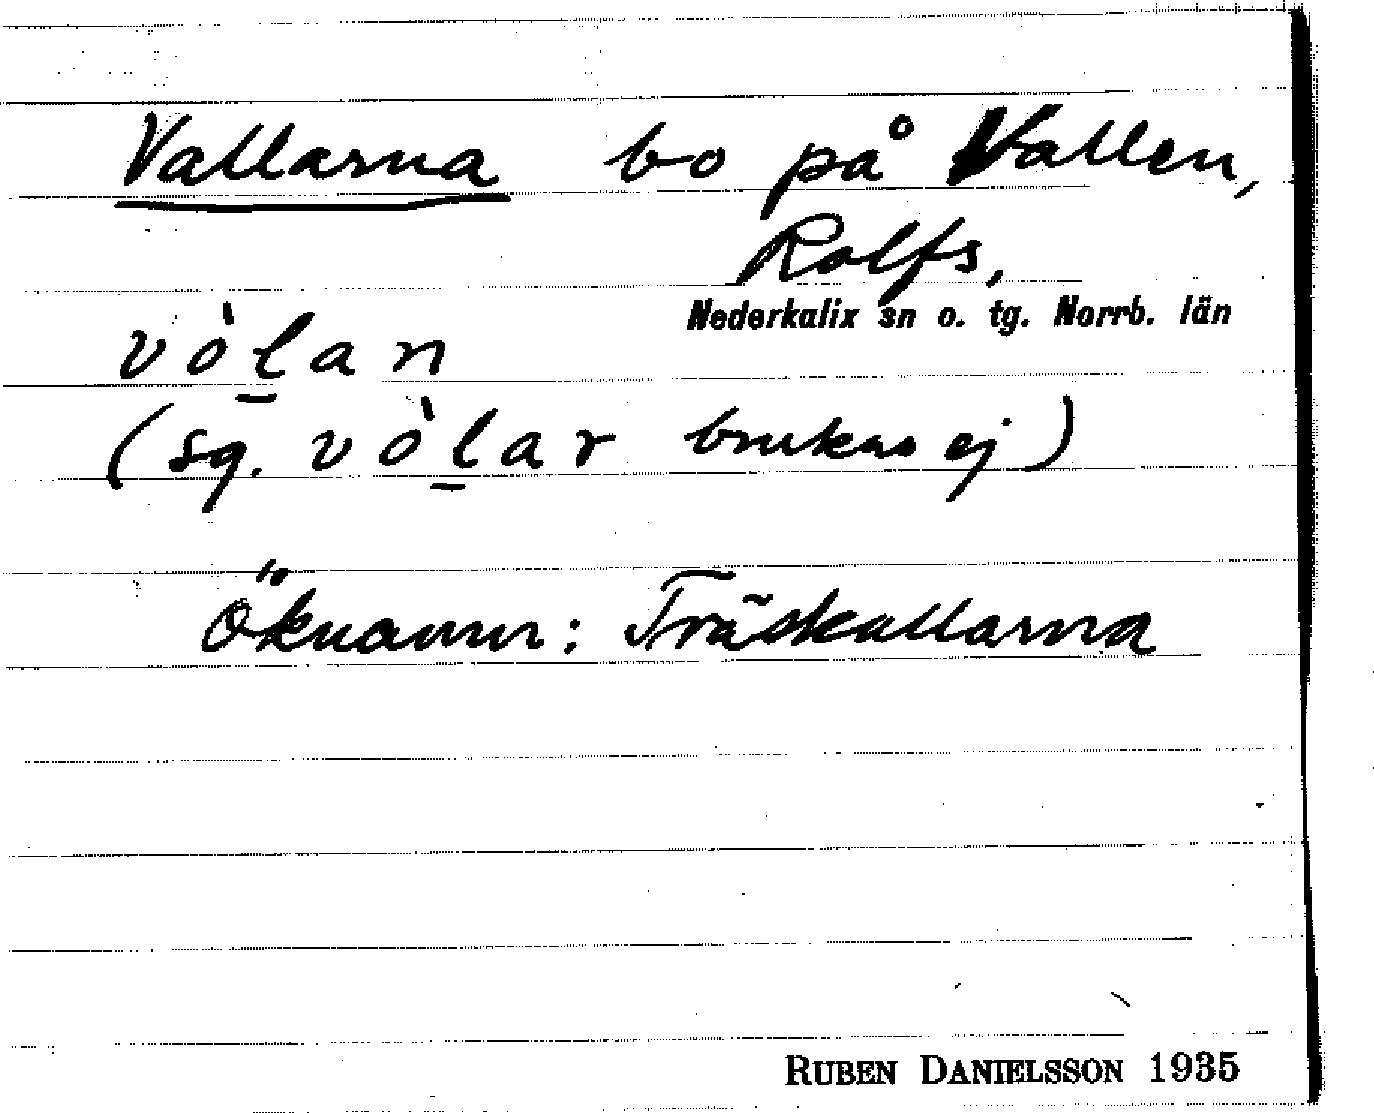 Vallarna bo på Vallen,
Rolfs,
Nederkalix sn o. tg. Norrb. län
vò̱lan
(sg. vò̱lar brukas ej)
Öknamn: Träskallarna
RUBEN DANIELSSON 1935